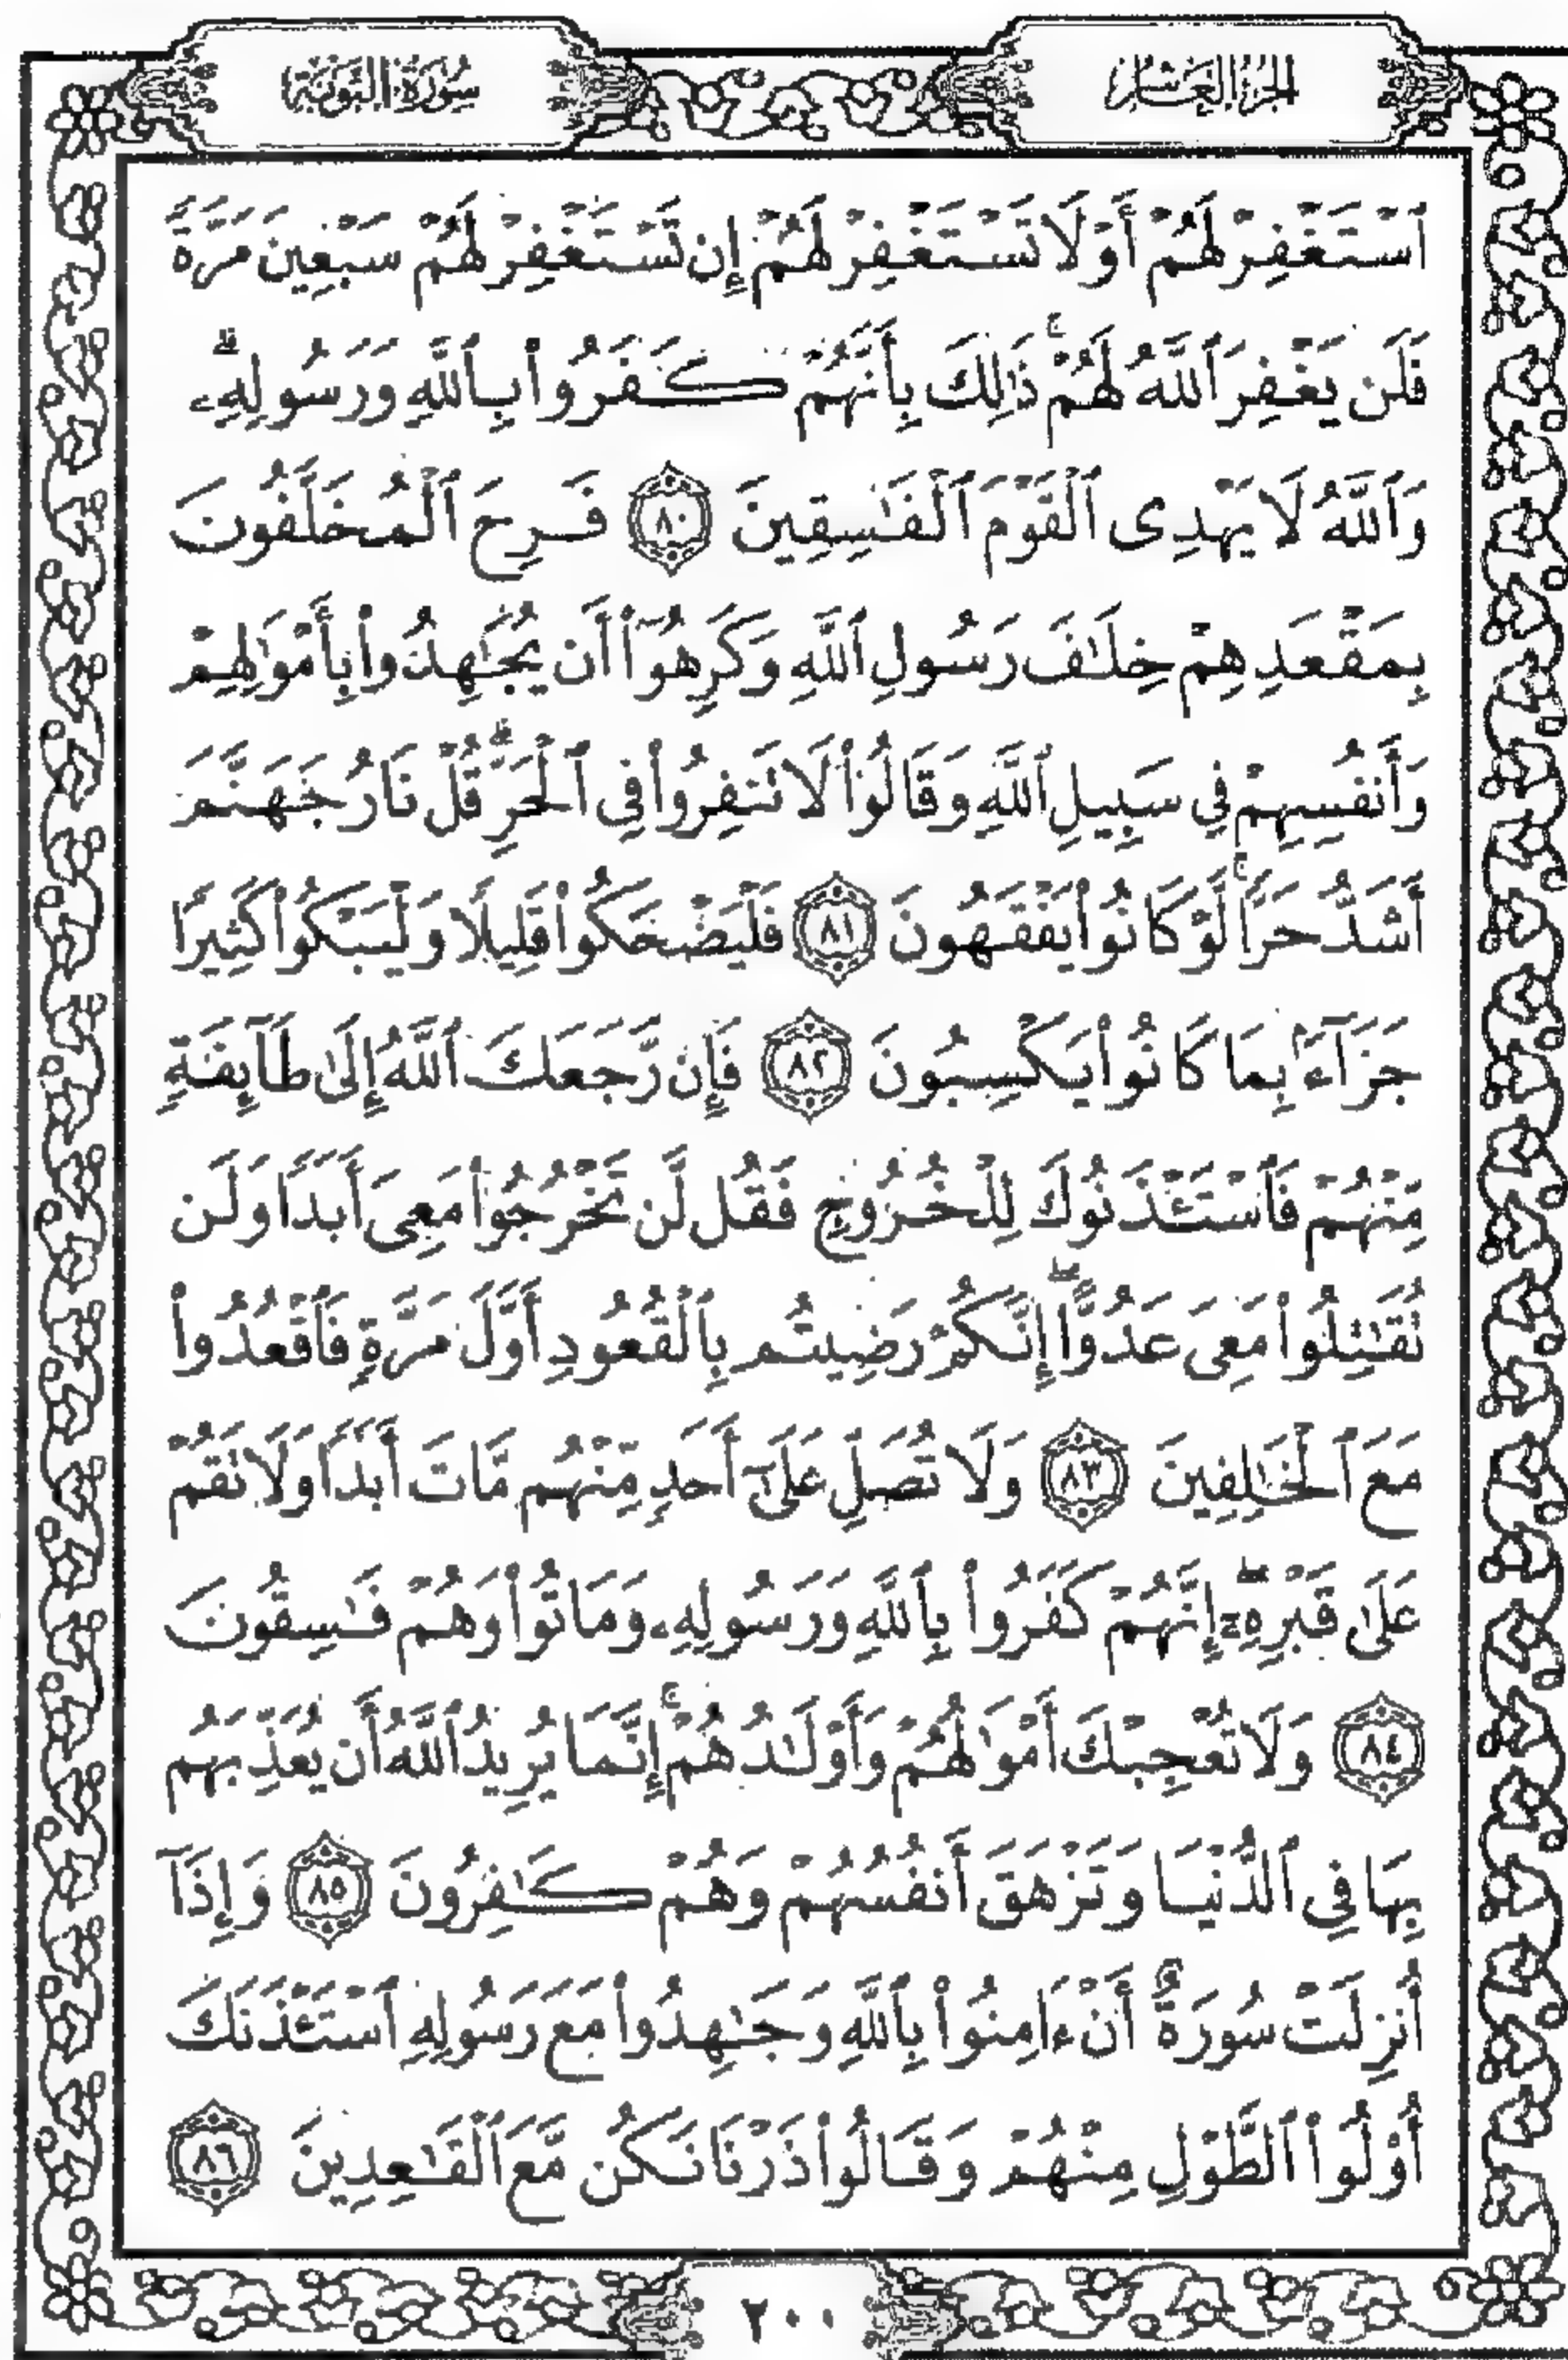 الجزء العاشر
سورة التوبة
ٱسۡتَغۡفِرۡ لَهُمۡ أَوۡ لَا تَسۡتَغۡفِرۡ لَهُمۡ إِن تَسۡتَغۡفِرۡ لَهُمۡ سَبۡعِينَ مَرَّةٗ
فَلَن يَغۡفِرَ ٱللَّهُ لَهُمۡۚ ذَٰلِكَ بِأَنَّهُمۡ كَفَرُواْ بِٱللَّهِ وَرَسُولِهِۦۗ
وَٱللَّهُ لَا يَهۡدِى ٱلۡقَوۡمَ ٱلۡفَٰسِقِينَ ٨٠ فَرِحَ ٱلۡمُخَلَّفُونَ
بِمَقۡعَدِهِمۡ خِلَٰفَ رَسُولِ ٱللَّهِ وَكَرِهُوٓاْ أَن يُجَٰهِدُواْ بِأَمۡوَٰلِهِمۡ
وَأَنفُسِهِمۡ فِى سَبِيلِ ٱللَّهِ وَقَالُواْ لَا تَنفِرُواْ فِى ٱلۡحَرِّۗ قُلۡ نَارُ جَهَنَّمَ
أَشَدُّ حَرّٗاۚ لَّوۡ كَانُواْ يَفۡقَهُونَ ٨١ فَلۡيَضۡحَكُواْ قَلِيلٗا وَلۡيَبۡكُواْ كَثِيرٗا
جَزَآءَۢ بِمَا كَانُواْ يَكۡسِبُونَ ٨٢ فَإِن رَّجَعَكَ ٱللَّهُ إِلَىٰ طَآئِفَةٖ
مِّنۡهُمۡ فَٱسۡتَـٔۡذَنُوكَ لِلۡخُرُوجِ فَقُل لَّن تَخۡرُجُواْ مَعِىَ أَبَدٗا وَلَن
تُقَٰتِلُواْ مَعِىَ عَدُوًّاۖ إِنَّكُمۡ رَضِيتُم بِٱلۡقُعُودِ أَوَّلَ مَرَّةٖ فَٱقۡعُدُواْ
مَعَ ٱلۡخَٰلِفِينَ ٨٣ وَلَا تُصَلِّ عَلَىٰٓ أَحَدٖ مِّنۡهُم مَّاتَ أَبَدٗا وَلَا تَقُمۡ
عَلَىٰ قَبۡرِهِۦٓۖ إِنَّهُمۡ كَفَرُواْ بِٱللَّهِ وَرَسُولِهِۦ وَمَاتُواْ وَهُمۡ فَٰسِقُونَ
٨٤ وَلَا تُعۡجِبۡكَ أَمۡوَٰلُهُمۡ وَأَوۡلَٰدُهُمۡۚ إِنَّمَا يُرِيدُ ٱللَّهُ أَن يُعَذِّبَهُم
بِهَا فِى ٱلدُّنۡيَا وَتَزۡهَقَ أَنفُسُهُمۡ وَهُمۡ كَٰفِرُونَ ٨٥ وَإِذَآ
أُنزِلَتۡ سُورَةٌ أَنۡ ءَامِنُواْ بِٱللَّهِ وَجَٰهِدُواْ مَعَ رَسُولِهِ ٱسۡتَـٔۡذَنَكَ
أُوْلُواْ ٱلطَّوۡلِ مِنۡهُمۡ وَقَالُواْ ذَرۡنَا نَكُن مَّعَ ٱلۡقَٰعِدِينَ ٨٦
٢٠٠